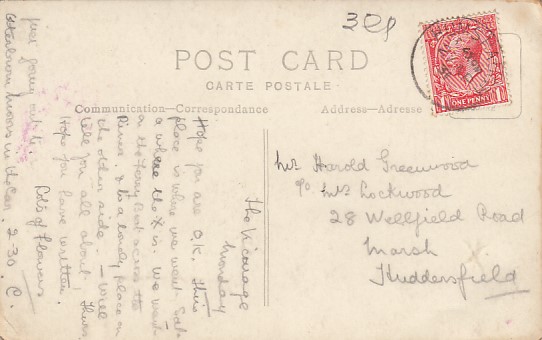 3 Ggp
POST CARD
CARTE POSTALE
Communication—Correspondance
Address—Adresse
ONE PENNY
The Vicarage
Monday
Hope you are O.K. This
place is where we went Sat-
& where the X is. We went
on the Ferry Boat across the
River & to a lovely place on
the other side — will
tell you all about, Thurs.
Hope you have written.
Lots of Flowers
just going out to
Moors in the Car. 2-30. C.
Mr Harold Greenwood
c/o Mrs Lockwood
28 Wellfield Road
Marsh
Huddersfield